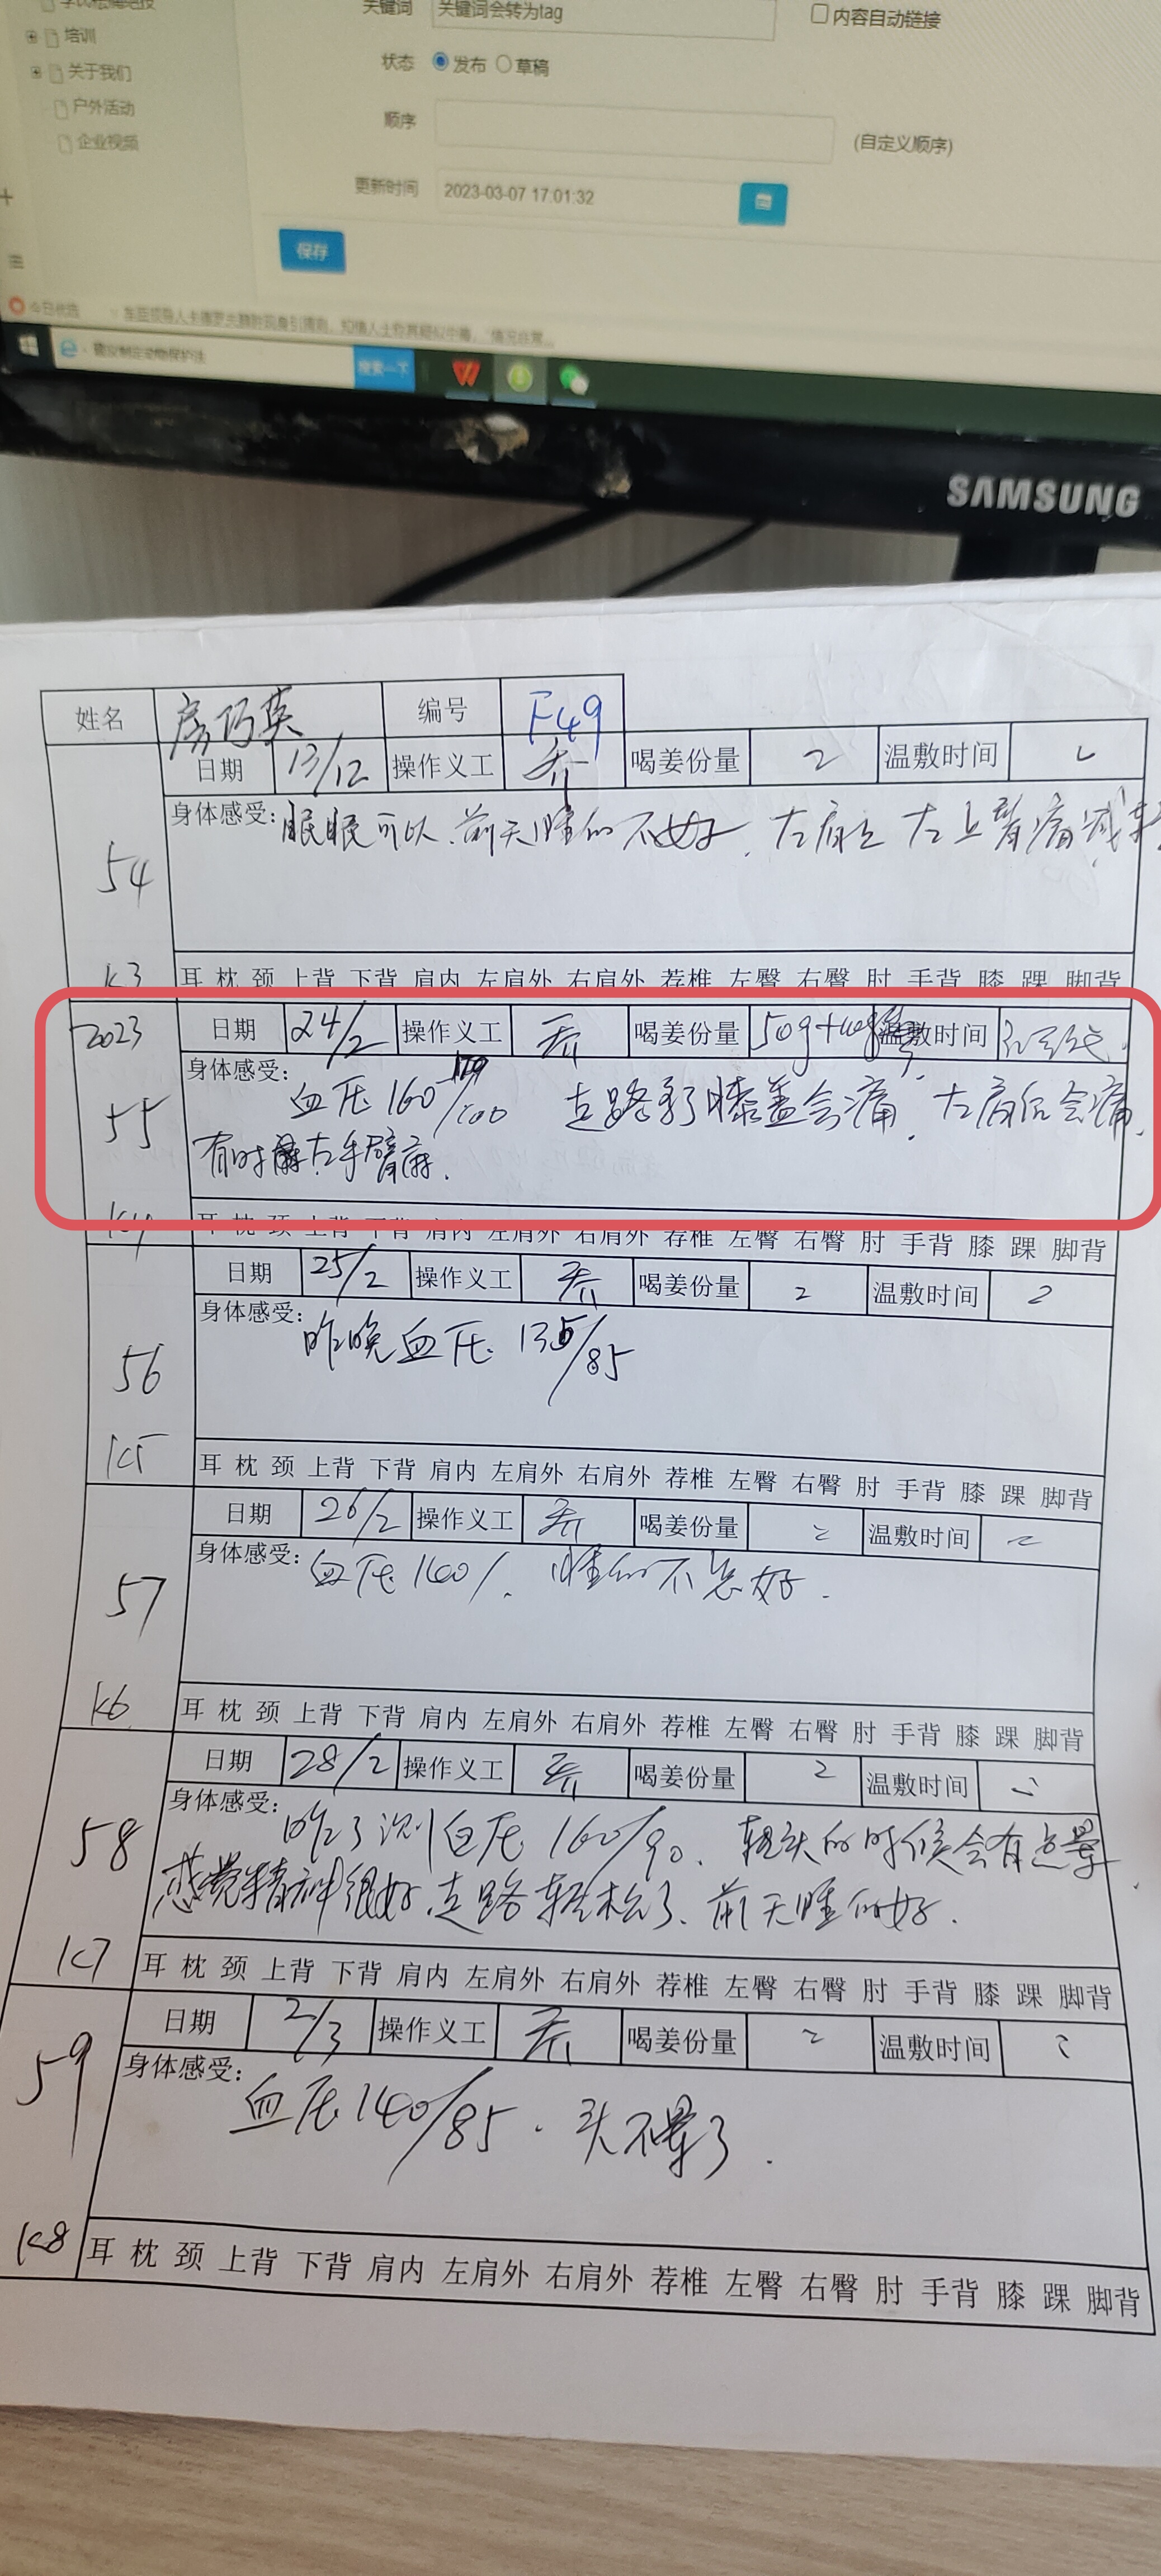 关键词 关键词会转为tag 内容自动链接
培训
状态 发布 草稿
关于我们
户外活动
顺序 (自定义顺序)
企业视频
更新时间 2023-03-07 17:01:32
保存
搜索一下
SAMSUNG
姓名 房巧英 编号 F49
日期 13/12 操作义工 乔 喝姜份量 2 温敷时间 2
身体感受: 眠眠可以、前天睡的不好、左肩、左上臂痛减轻
54
K3 耳 枕 颈 上背 下背 肩内 左肩外 右肩外 荐椎 左臀 右臀 肘 手背 膝 踝 脚背
2023 日期 24/2 操作义工 乔 喝姜份量 50g+ 温敷时间
身体感受: 血压160/100 走路多了膝盖会痛、左肩后会痛、
55 有时 左手臂麻.
K4 耳 枕 颈 上背 下背 肩内 左肩外 右肩外 荐椎 左臀 右臀 肘 手背 膝 踝 脚背
日期 25/2 操作义工 乔 喝姜份量 2 温敷时间 2
身体感受: 昨晚血压 135/85
56
K5 耳 枕 颈 上背 下背 肩内 左肩外 右肩外 荐椎 左臀 右臀 肘 手背 膝 踝 脚背
日期 26/2 操作义工 乔 喝姜份量 2 温敷时间 2
身体感受: 血压160/、睡的不怎好.
57
K6 耳 枕 颈 上背 下背 肩内 左肩外 右肩外 荐椎 左臀 右臀 肘 手背 膝 踝 脚背
日期 28/2 操作义工 乔 喝姜份量 2 温敷时间 2
身体感受: 昨了测血压160/90、扭头的时候会有点晕、
58 感觉精神很好、走路轻松了、前天睡的好.
K7 耳 枕 颈 上背 下背 肩内 左肩外 右肩外 荐椎 左臀 右臀 肘 手背 膝 踝 脚背
日期 2/3 操作义工 乔 喝姜份量 2 温敷时间 2
59 身体感受: 血压140/85. 头不晕了.
K8 耳 枕 颈 上背 下背 肩内 左肩外 右肩外 荐椎 左臀 右臀 肘 手背 膝 踝 脚背